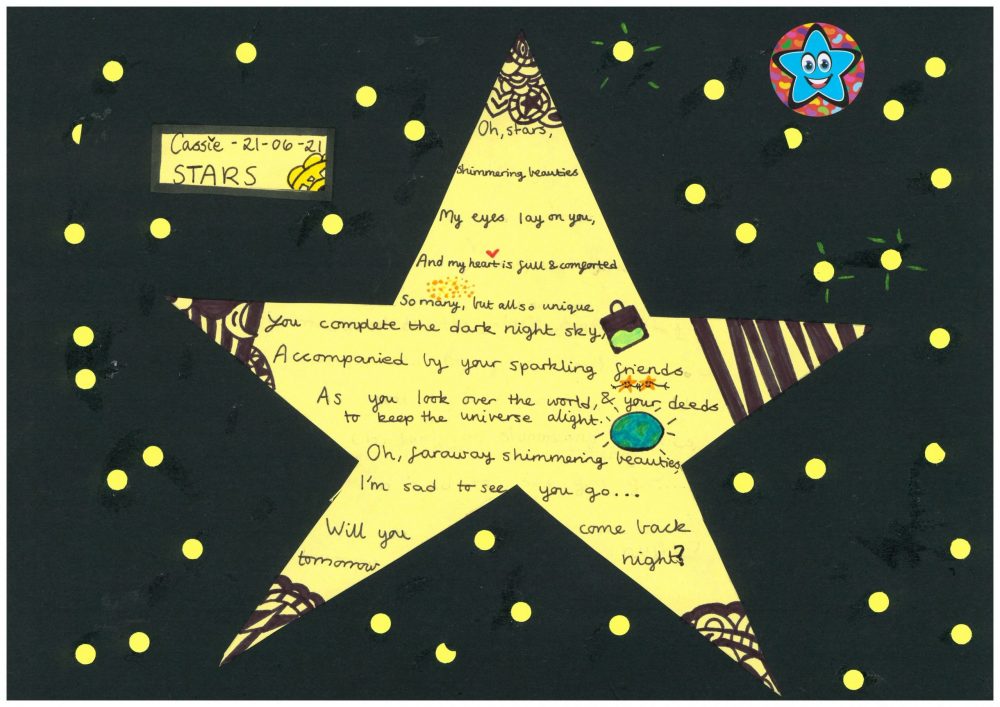 Cassie - 21-06-21
STARS
Oh, stars,
shimmering beauties
My eyes lay on you,
And my heart is full & comforted
So many, but all so unique
You complete the dark night sky,
Accompanied by your sparkling friends
As you look over the world, & your deeds
to keep the universe alight.
Oh, faraway shimmering beauties,
I'm sad to see you go...
Will you come back
tomorrow night?